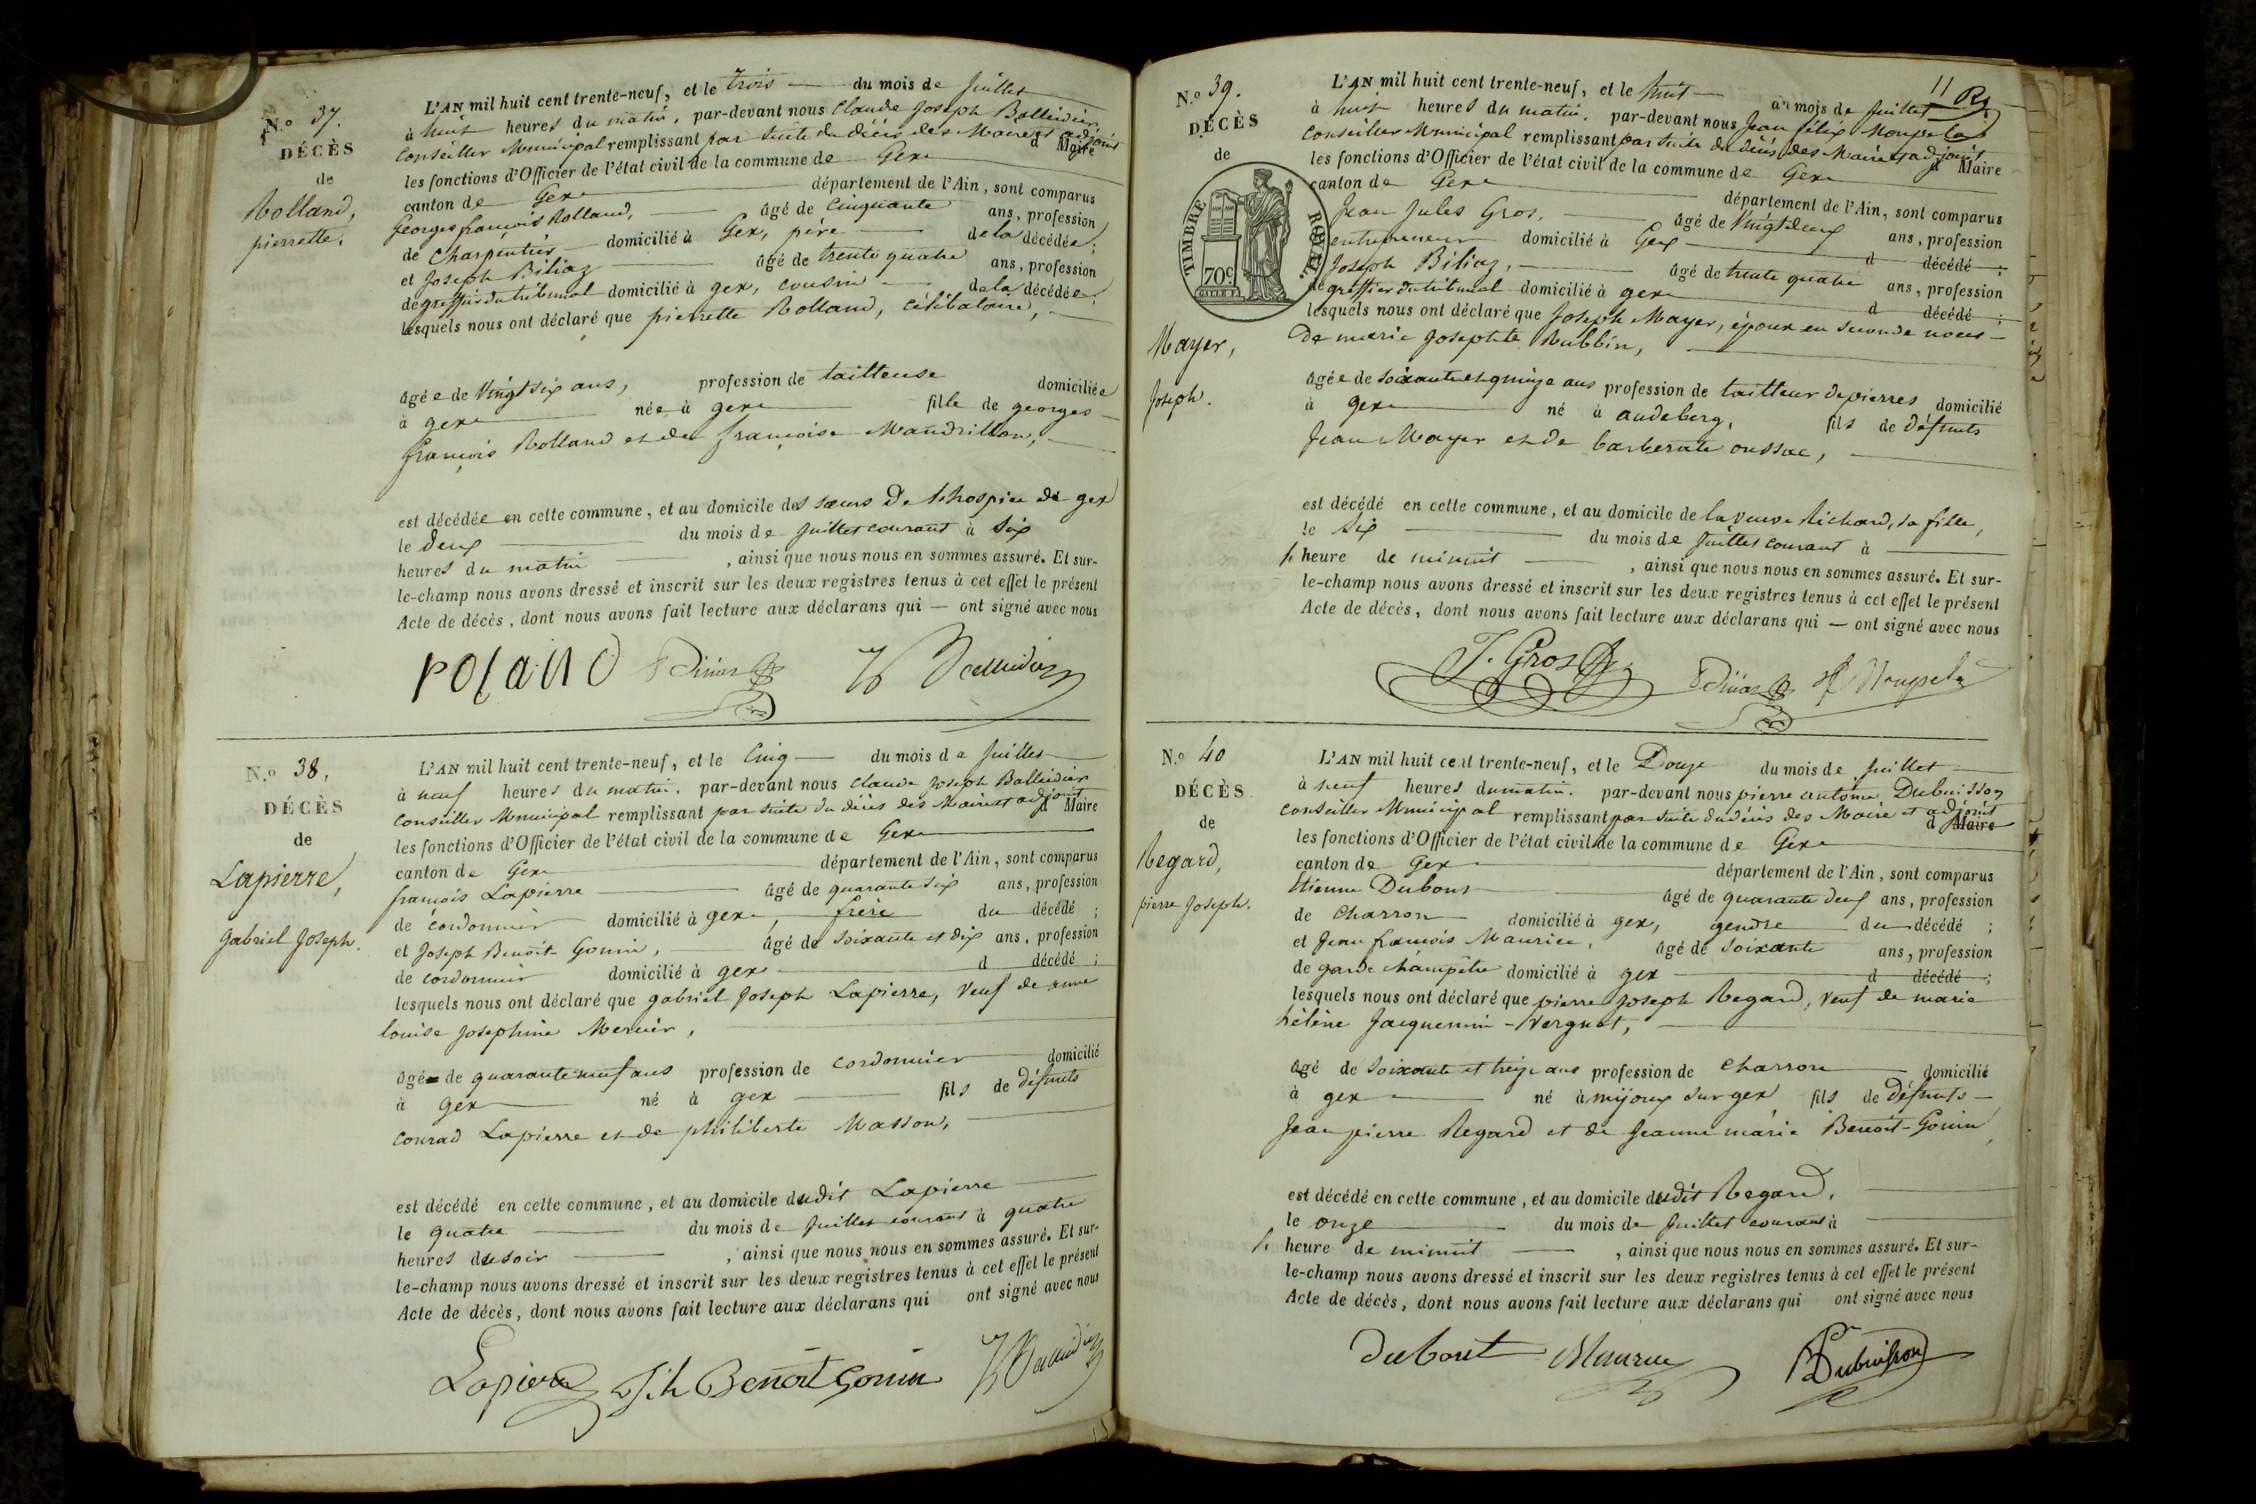 N.o 37.
DÉCÈS
de
Rolland,
pierrette.
L'AN mil huit cent trente-neuf, et le trois du mois de juillet
à huit heures du matin, par-devant nous Claude Joseph Balleidier
Conseiller Municipal remplissant par suite du décès des Maire et adjoint d Maire
les fonctions d'Officier de l'état civil de la commune de Gex
canton de Gex département de l'Ain, sont comparus
Georges françois Rolland, âgé de Cinquante ans, profession
de Charpentier domicilié à Gex, père de la décédée;
et Joseph Béliaz âgé de trente quatre ans, profession
de greffier du tribunal domicilié à gex, cousin de la décédée;
lesquels nous ont déclaré que pierrette Rolland, célibataire,
âgée de Vingt six ans, profession de tailleuse domiciliée
à gex née à gex fille de georges
françois Rolland et de françoise Mandrillon,
est décédée en cette commune, et au domicile des sœurs De l'hospice de gex
le deux du mois de juillet courant à six
heures du matin, ainsi que nous nous en sommes assuré. Et sur-
le-champ nous avons dressé et inscrit sur les deux registres tenus à cet effet le présent
Acte de décès, dont nous avons fait lecture aux déclarans qui — ont signé avec nous
rolaNd
N.o 38,
DÉCÈS
de
Lapierre,
gabriel Joseph.
L'AN mil huit cent trente-neuf, et le Cinq du mois de juillet
à neuf heures du matin. par-devant nous Claude Joseph Balleidier
Conseiller Municipal remplissant par suite du décès des Maire et adjoint d Maire
les fonctions d'Officier de l'état civil de la commune de Gex
canton de Gex département de l'Ain, sont comparus
françois Lapierre âgé de quarante six ans, profession
de cordonnier domicilié à gex, frère du décédé;
et Joseph Benoît Gonin, âgé de soixante et dix ans, profession
de cordonnier domicilié à gex d décédé;
lesquels nous ont déclaré que gabriel Joseph Lapierre, Veuf de anne
louise Josephine Mercier,
âgé de quarante neuf ans profession de cordonnier domicilié
à gex né à gex fils de Défunts
Conrad Lapierre et de philiberte Masson,
est décédé en cette commune, et au domicile dudit Lapierre
le quatre du mois de juillet courant à quatre
heures du soir, ainsi que nous nous en sommes assuré. Et sur-
le-champ nous avons dressé et inscrit sur les deux registres tenus à cet effet le présent
Acte de décès, dont nous avons fait lecture aux déclarans qui ont signé avec nous
Lapierre Jh Benoît Gonin
11
N.o 39.
DÉCÈS
de
TIMBRE ROYAL.
70c.
Mayer,
Joseph.
L'AN mil huit cent trente-neuf, et le huit du mois de juillet
à huit heures du matin. par-devant nous Jean félix
Conseiller Municipal remplissant par suite du décès des Maire et adjoint d Maire
les fonctions d'Officier de l'état civil de la commune de Gex
canton de Gex département de l'Ain, sont comparus
Jean Jules Gros, âgé de Vingt deux ans, profession
entrepreneur domicilié à Gex d décédé;
Joseph Béliaz, âgé de trente quatre ans, profession
de greffier du tribunal domicilié à gex d décédé;
lesquels nous ont déclaré que Joseph Mayer, époux en seconde noces
De marie Josephte Rubbin,
âgé de soixante et quinze ans profession de tailleur de pierres domicilié
à gex né à audeberg, fils de défunts
Jean Mayer et de barberate oussac,
est décédé en cette commune, et au domicile de la veuve Richard, sa fille,
le six du mois de juillet courant à
heure de minuit, ainsi que nous nous en sommes assuré. Et sur-
le-champ nous avons dressé et inscrit sur les deux registres tenus à cet effet le présent
Acte de décès, dont nous avons fait lecture aux déclarans qui — ont signé avec nous
J. Gros
N.o 40
DÉCÈS
de
Regard,
pierre Joseph.
L'AN mil huit cent trente-neuf, et le Douze du mois de juillet
à neuf heures du matin. par-devant nous pierre antoine Dubuisson
Conseiller Municipal remplissant par suite du décès des Maire et adjoint d Maire
les fonctions d'Officier de l'état civil de la commune de Gex
canton de Gex département de l'Ain, sont comparus
Etienne Dubout âgé de quarante deux ans, profession
de Charron domicilié à gex, gendre du décédé;
et Jean françois Maurice, âgé de soixante ans, profession
de garde champêtre domicilié à gex d décédé;
lesquels nous ont déclaré que pierre Joseph Regard, Veuf de marie
hélène Jacquemin-Verguet,
âgé de soixante et treize ans profession de charron domicilié
à gex né à mijoux sur gex fils de Défunts
Jean pierre Regard et de Jeanne marie Benoît-Gonin
est décédé en cette commune, et au domicile dudit Regard,
le onze du mois de juillet courant à
heure de minuit, ainsi que nous nous en sommes assuré. Et sur-
le-champ nous avons dressé et inscrit sur les deux registres tenus à cet effet le présent
Acte de décès, dont nous avons fait lecture aux déclarans qui ont signé avec nous
Dubout Maurice Dubuisson